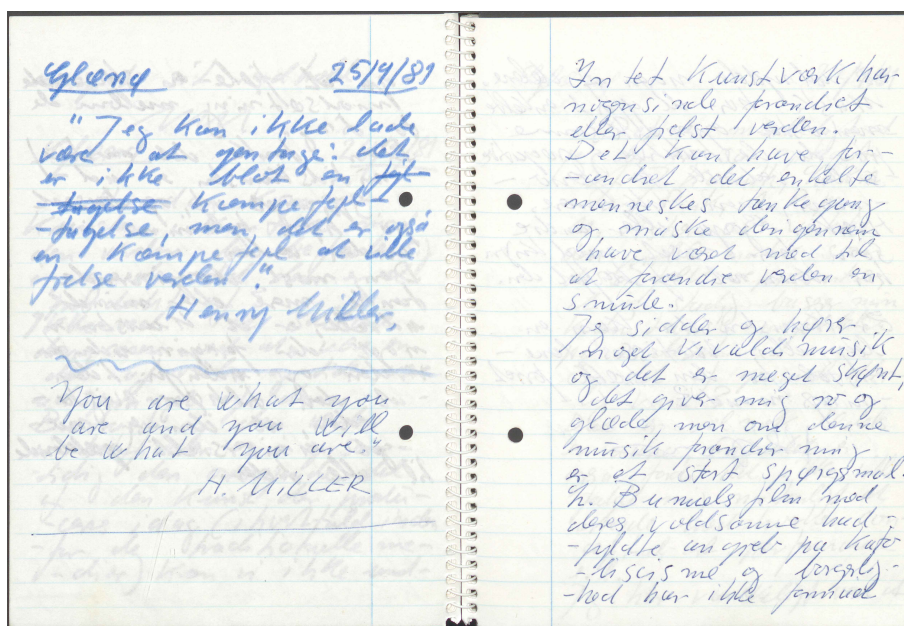 Glænø 25/4/89
"Jeg kan ikke lade
være at gentage: det
er ikke blot en fejl-
-tagelse kæmpe fejl-
-tagelse, men det er også
en kæmpe fejl at ville
frelse verden".
Henry Miller,
You are what you
are and you will
be what you are."
H. MILLER
Intet kunstværk har
nogensinde forandret
eller frelst verden.
Det kan have for-
-andret det enkelte
menneskes tankegang
og måske derigennem
have været med til
at forandre verden en
smule.
Jeg sidder og hører
noget Vivaldi musik
og det er meget skønt,
det giver mig ro og
glæde, men om denne
musik forandrer mig
er et stort spørgsmål.
L. Bunuels film med
deres voldsomme had-
-fyldte angreb på kato-
-liscisme og borgerlig-
-hed har ikke formået